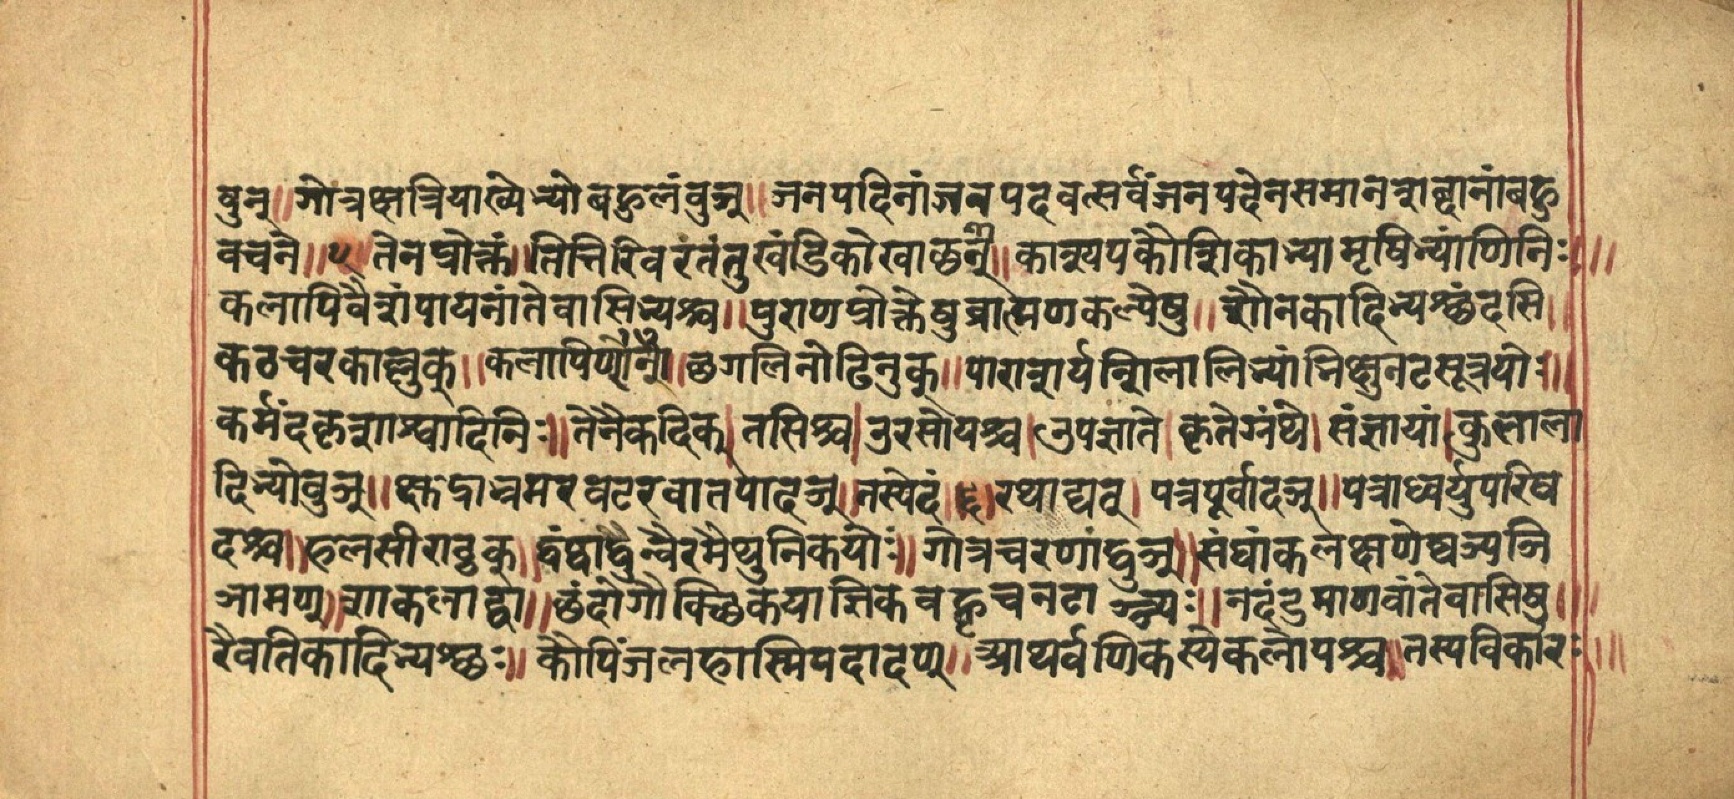 वुन्॥ गोत्रक्षत्रियाख्येभ्योबहुलंवुञ्॥ जनपदिनांजनपदवत्सर्वंजनपदेनसमानशब्दानांबहु
वचने॥५ तेनप्रोक्तं॥ तित्तिरिवरतंतुखंडिकोखाछण्॥ काश्यपकौशिकाभ्यामृषिभ्यांणिनिः॥
कलापिवैशंपायनांतेवासिभ्यश्च॥ पुराणप्रोक्तेषुब्राह्मणकल्पेषु॥ शौनकादिभ्यश्छंदसि॥
कठचरकाल्लुक्॥ कलापिणोण्॥ छगलिनोढिनुक्॥ पाराशर्यशिलालिभ्यांभिक्षुनटसूत्रयोः॥
कर्मंदकृशाश्वादिनिः॥ तेनैकदिक्। तसिश्च। उरसोयश्च। उपज्ञाते। कृतेग्रंथे। संज्ञायां। कुलाला
दिभ्योवुञ्॥ क्षुद्राभ्रमरवटरवातपादञ्॥ तस्येदं॥६॥ रथाद्यत्। पत्रपूर्वादञ्॥ पत्राध्वर्युपरिष
दश्च॥ हलसीराठ्ठक्॥ द्वंद्वाद्वुन्वैरमैथुनिकयोः॥ गोत्रचरणाद्वुञ्॥ संघांकलक्षणेष्वञ्यञि
ञामण्॥ शाकलाद्वा॥ छंदोगौक्थिकयाज्ञिकबह्वृचनटाञ्ञ्यः॥ नदंडमाणवांतेवासिषु॥
रैवतिकादिभ्यश्छः॥ कौपिंजलहास्तिपदादण्॥ आथर्वणिकस्येकलोपश्च॥ तस्यविकारः॥